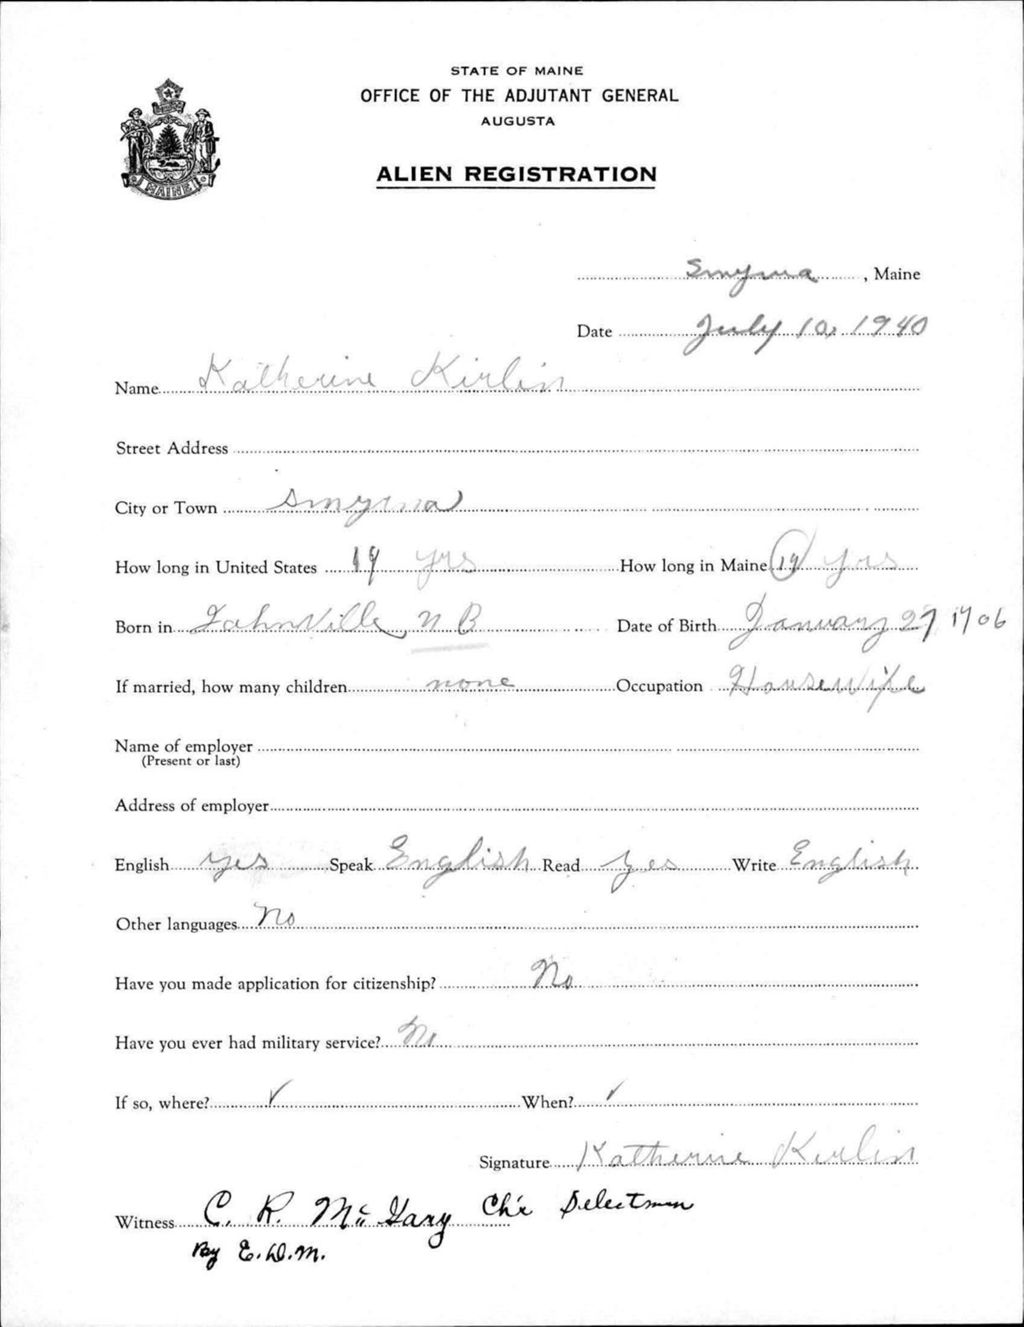 STATE OF MAINE
OFFICE OF THE ADJUTANT GENERAL
AUGUSTA
ALIEN REGISTRATION
MAINE
Smyrna, Maine
Date July 10, 1940
Name Katherine Kirlin
Street Address
City or Town Smyrna
How long in United States 19 yrs How long in Maine 19 yrs
Born in Johnville, N B Date of Birth January 27 1906
If married, how many children none Occupation Housewife
Name of employer
(Present or last)
Address of employer
English yes Speak English Read yes Write English
Other languages No
Have you made application for citizenship? No
Have you ever had military service? No
If so, where? ✓ When? ✓
Signature Katherine Kirlin
Witness C. R. McGary Ch'r Selectmen
By E.D.M.